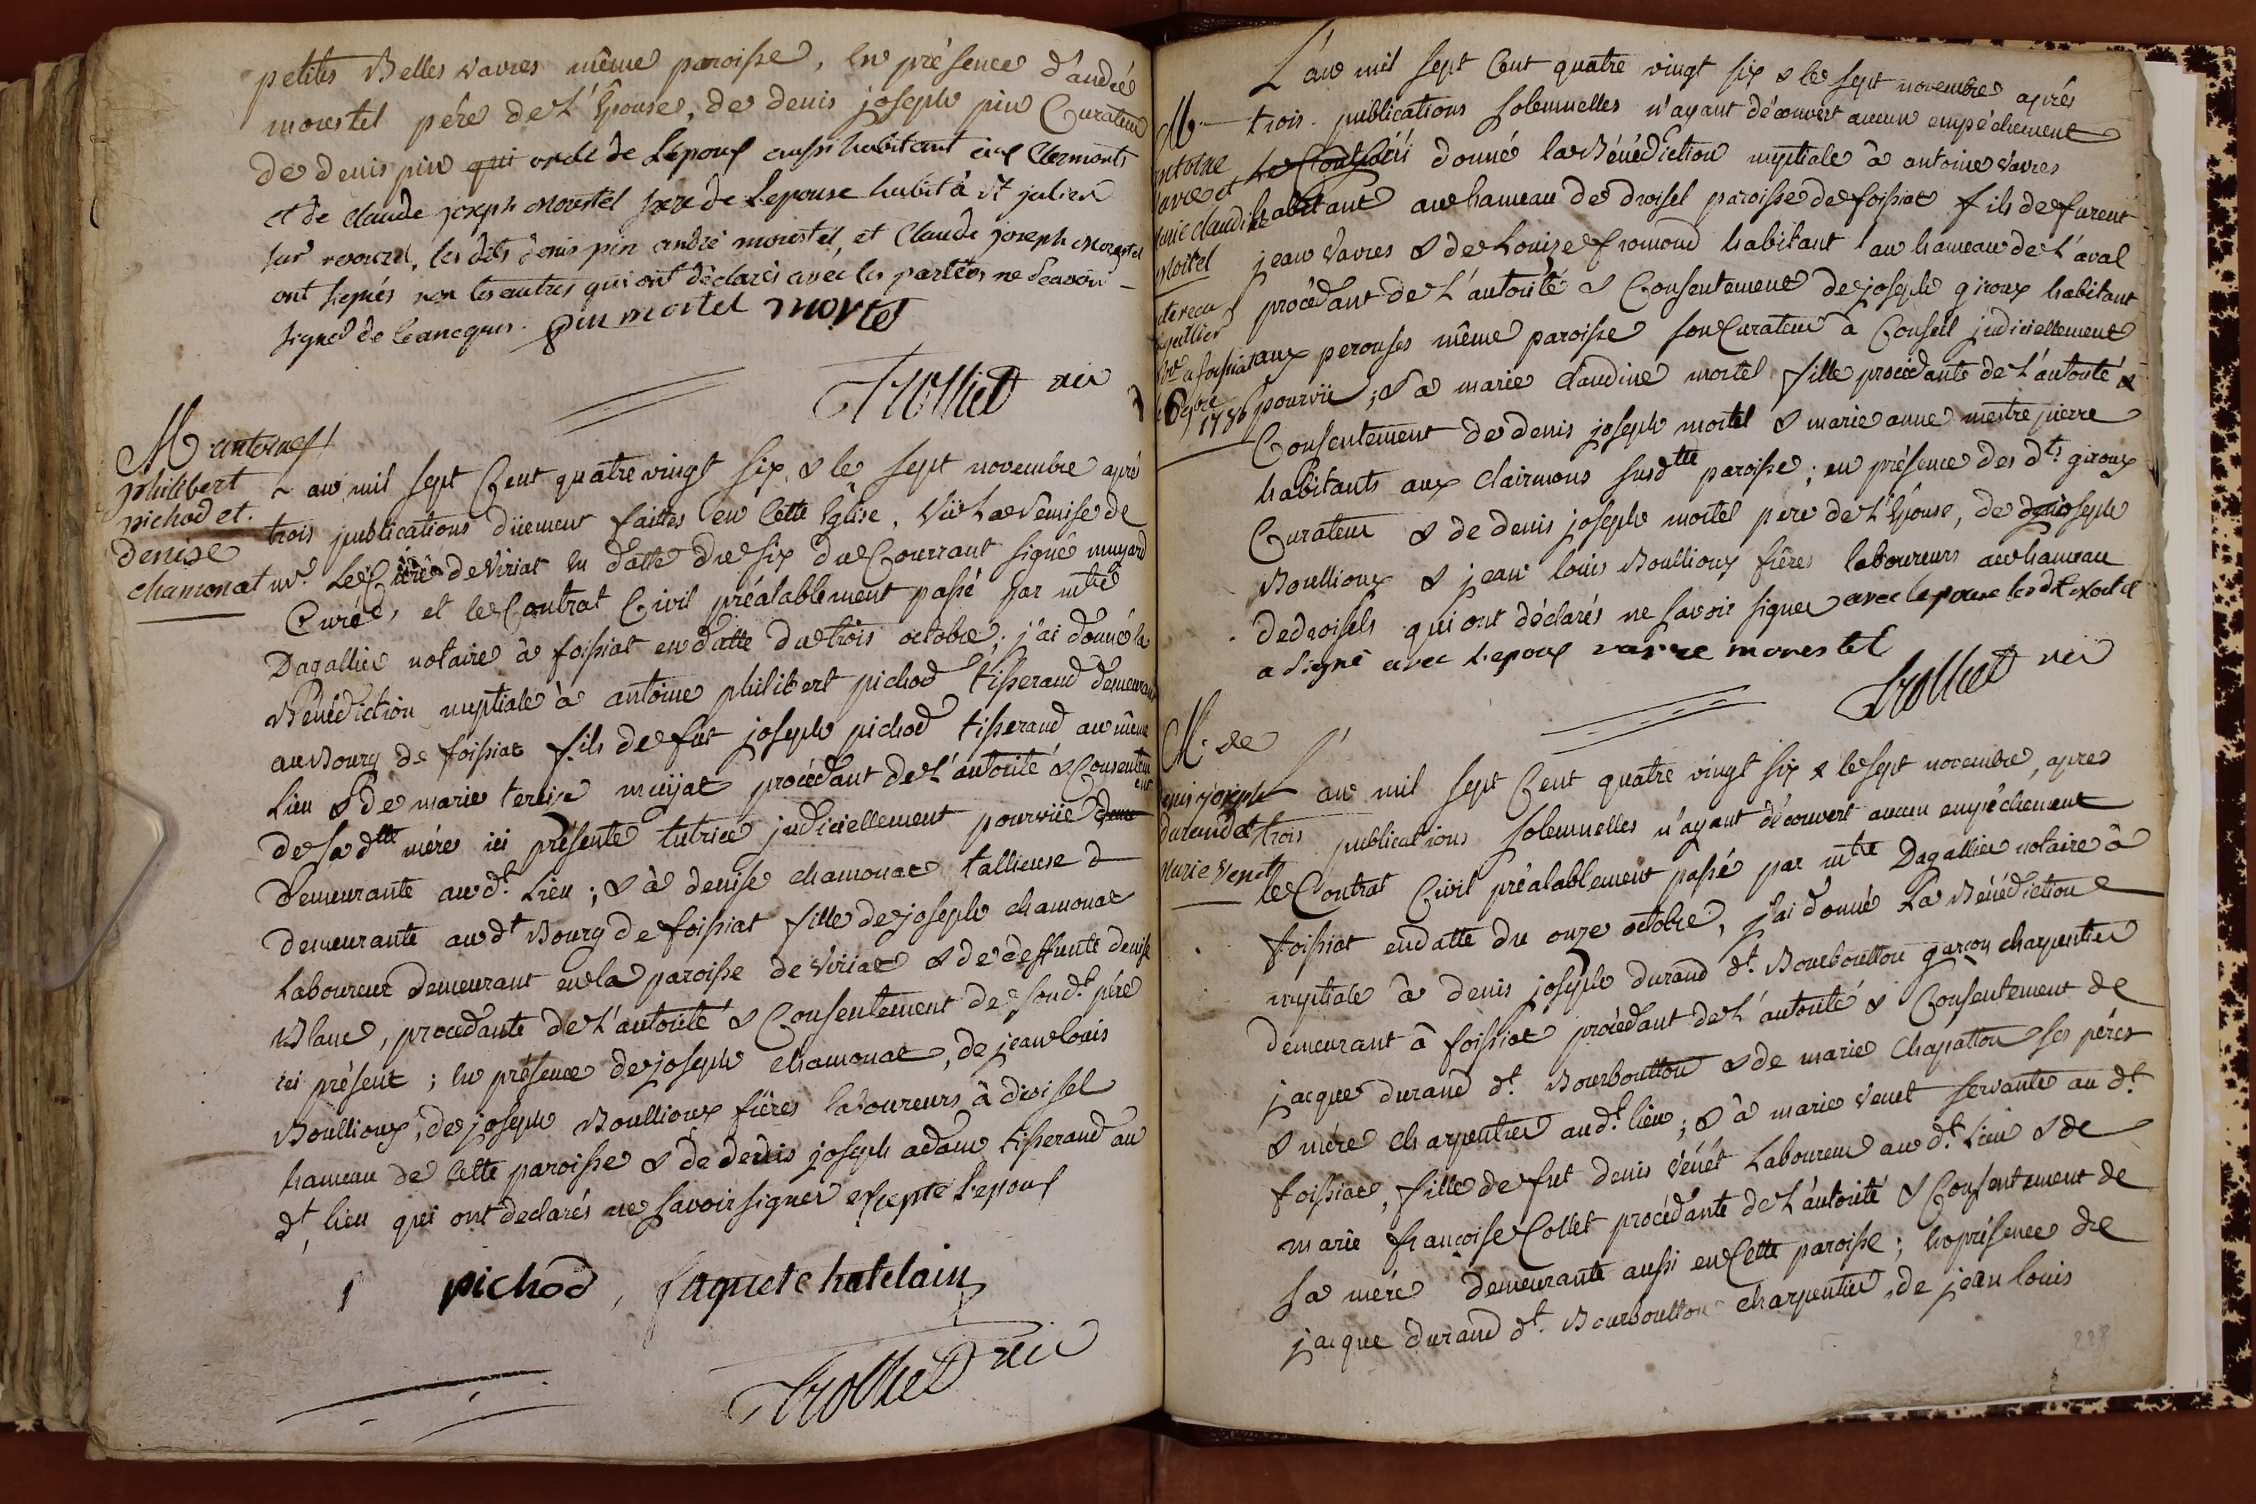 petites Belles vavres même paroisse, en présence d'andré
morestel père de L'Epouse, de denis joseph pin Curateur
de denis pin qui oncle de L'epoux aussi habitant aux Clermonts
et de Claude joseph Morestel frere de Lepouse habit à St julien
sur resouze, les dits denis pin andré morestel, et Claude joseph Morestel
ont signés non les autres qui ont déclarés avec les parties ne scavoir
signer de ce enequis. pin mortel mortel
Trolliet vic
M antoine
philibert
pichod et
denise
chamonat
L'an mil sept Cent quatre vingt six, & le sept novembre après
trois publications düement faittes en Cette Eglise, vü La remise de
mr. Le Curé de viriat en datte du six du Courrant signé muyard
Curé, et le Contrat Civil préalablement passé par mtre
Dagallier notaire à foissiat en datte du trois octobre; j'ai donné la
Bénédiction nuptiale à antoine philibert pichod tisserand demeurant
au Bourg de foissiat fils de fut joseph pichod tisserand au même
Lieu & de marie terese muyat procédant de L'autorité & Consentement
de sa dtte mére ici présente tutrice judiciellement pourvüe deme
demeurante au dt. Lieu; & à denise chamonat tallieuse d
demeurante au dt Bourg de foissiat fille de joseph chamonat
Laboureur demeurant en la paroisse de viriat & de deffunte denise
Blanc, procedante de L'autorité & Consentement de son dt. pére
ici présent; en présence de joseph chamonat, de jean louis
Boullioux, de joseph Boullioux fréres laboureurs à droisel
hameau de Cette paroisse & de denis joseph adam tisserand au
dt. lieu qui ont declarés ne savoir signer excepté L'epoux
pichod, faguet chatelain
Trolliet vic
L'an mil sept Cent quatre vingt six & le sept novembre après
M
antoine
vavre et
marie claudine
Mortel
trois publications solemnelles n'ayant découvert aucun empéchement
donné la Bénédiction nuptiale à antoine vavres
habitant au hameau de droisel paroisse de foissiat fils de furent
jean vavres & de Louise fromond habitant au hameau de L'aval
procédant de L'autorité & Consentement de joseph giroux habitant
aux perouses même paroisse son Curateur à Conseil judiciellement
pourvü; & à marie claudine mortel fille procédante de L'autorité &
Consentement de denis joseph mortel & marie anne mestre pierre
habitants aux Clairmons susdtte paroisse; en présence des dts giroux
Curateur & de denis joseph mortel pere de L'Epouse, de joseph
Boullioux & jean louis Boullioux fréres laboureurs au hameau
de droisels qui ont déclarés ne savoir signer avec lepouse led Mortel
a signé avec L'epoux vavre morestel
Trolliet vic
M. de
denis joseph
durand et
Marie Venet
L'an mil sept Cent quatre vingt six & le sept novembre, apres
trois publications solemnelles n'ayant découvert aucun empéchement
le Contrat Civil préalablement passé par mtre Dagallier notaire à
foissiat en datte du onze octobre, j'ai donné La Bénédiction
nuptiale à denis joseph durand dt. Bourboullon garçon charpentier
demeurant à foissiat procédant de L'autorité & Consentement de
jacque durand dt. Bourboullon & de marie Chapatton ses pére
& mére charpentier au dt. lieu; & à marie venet servante au dt.
foissiat, fille de fut denis vénét Laboureur au dt. Lieu & de
marie françoise Collet procédante de L'autorité & Consentement de
Sa mére demeurante aussi en Cette paroisse; en présence de
jacque durand dt. Bourboullon charpentier, de jean louis